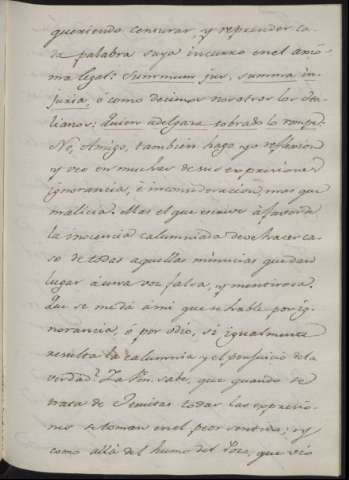 queriendo censurar, y reprender ca-
da palabra suya incurro en el axio-
ma legal: Summum jus, summa in-
juria, ó como decimos nosotros los Ita-
lianos: Quien adelgaza sobrado lo rompe.
No, Amigo, tambien hago yo reflexion
y veo en muchas de sus expresiones
ignorancia, é inconsideracion, mas que
malicia. Mas el que escrive á favor de
la inocencia calumniada deve hacer ca-
so de todas aquellas minucias que dan
lugar á una voz falsa, y mentirosa.
Que se me dá á mi que se hable por ig-
norancia, ó por odio, si igualmente
resulta la calumnia y el perjuicio de la
verdad? Ya Vm. sabe, que quando se
trata de Jesuitas todas las expresio-
nes se toman en el peor sentido; y
como allá del humo del Pozo, que vió